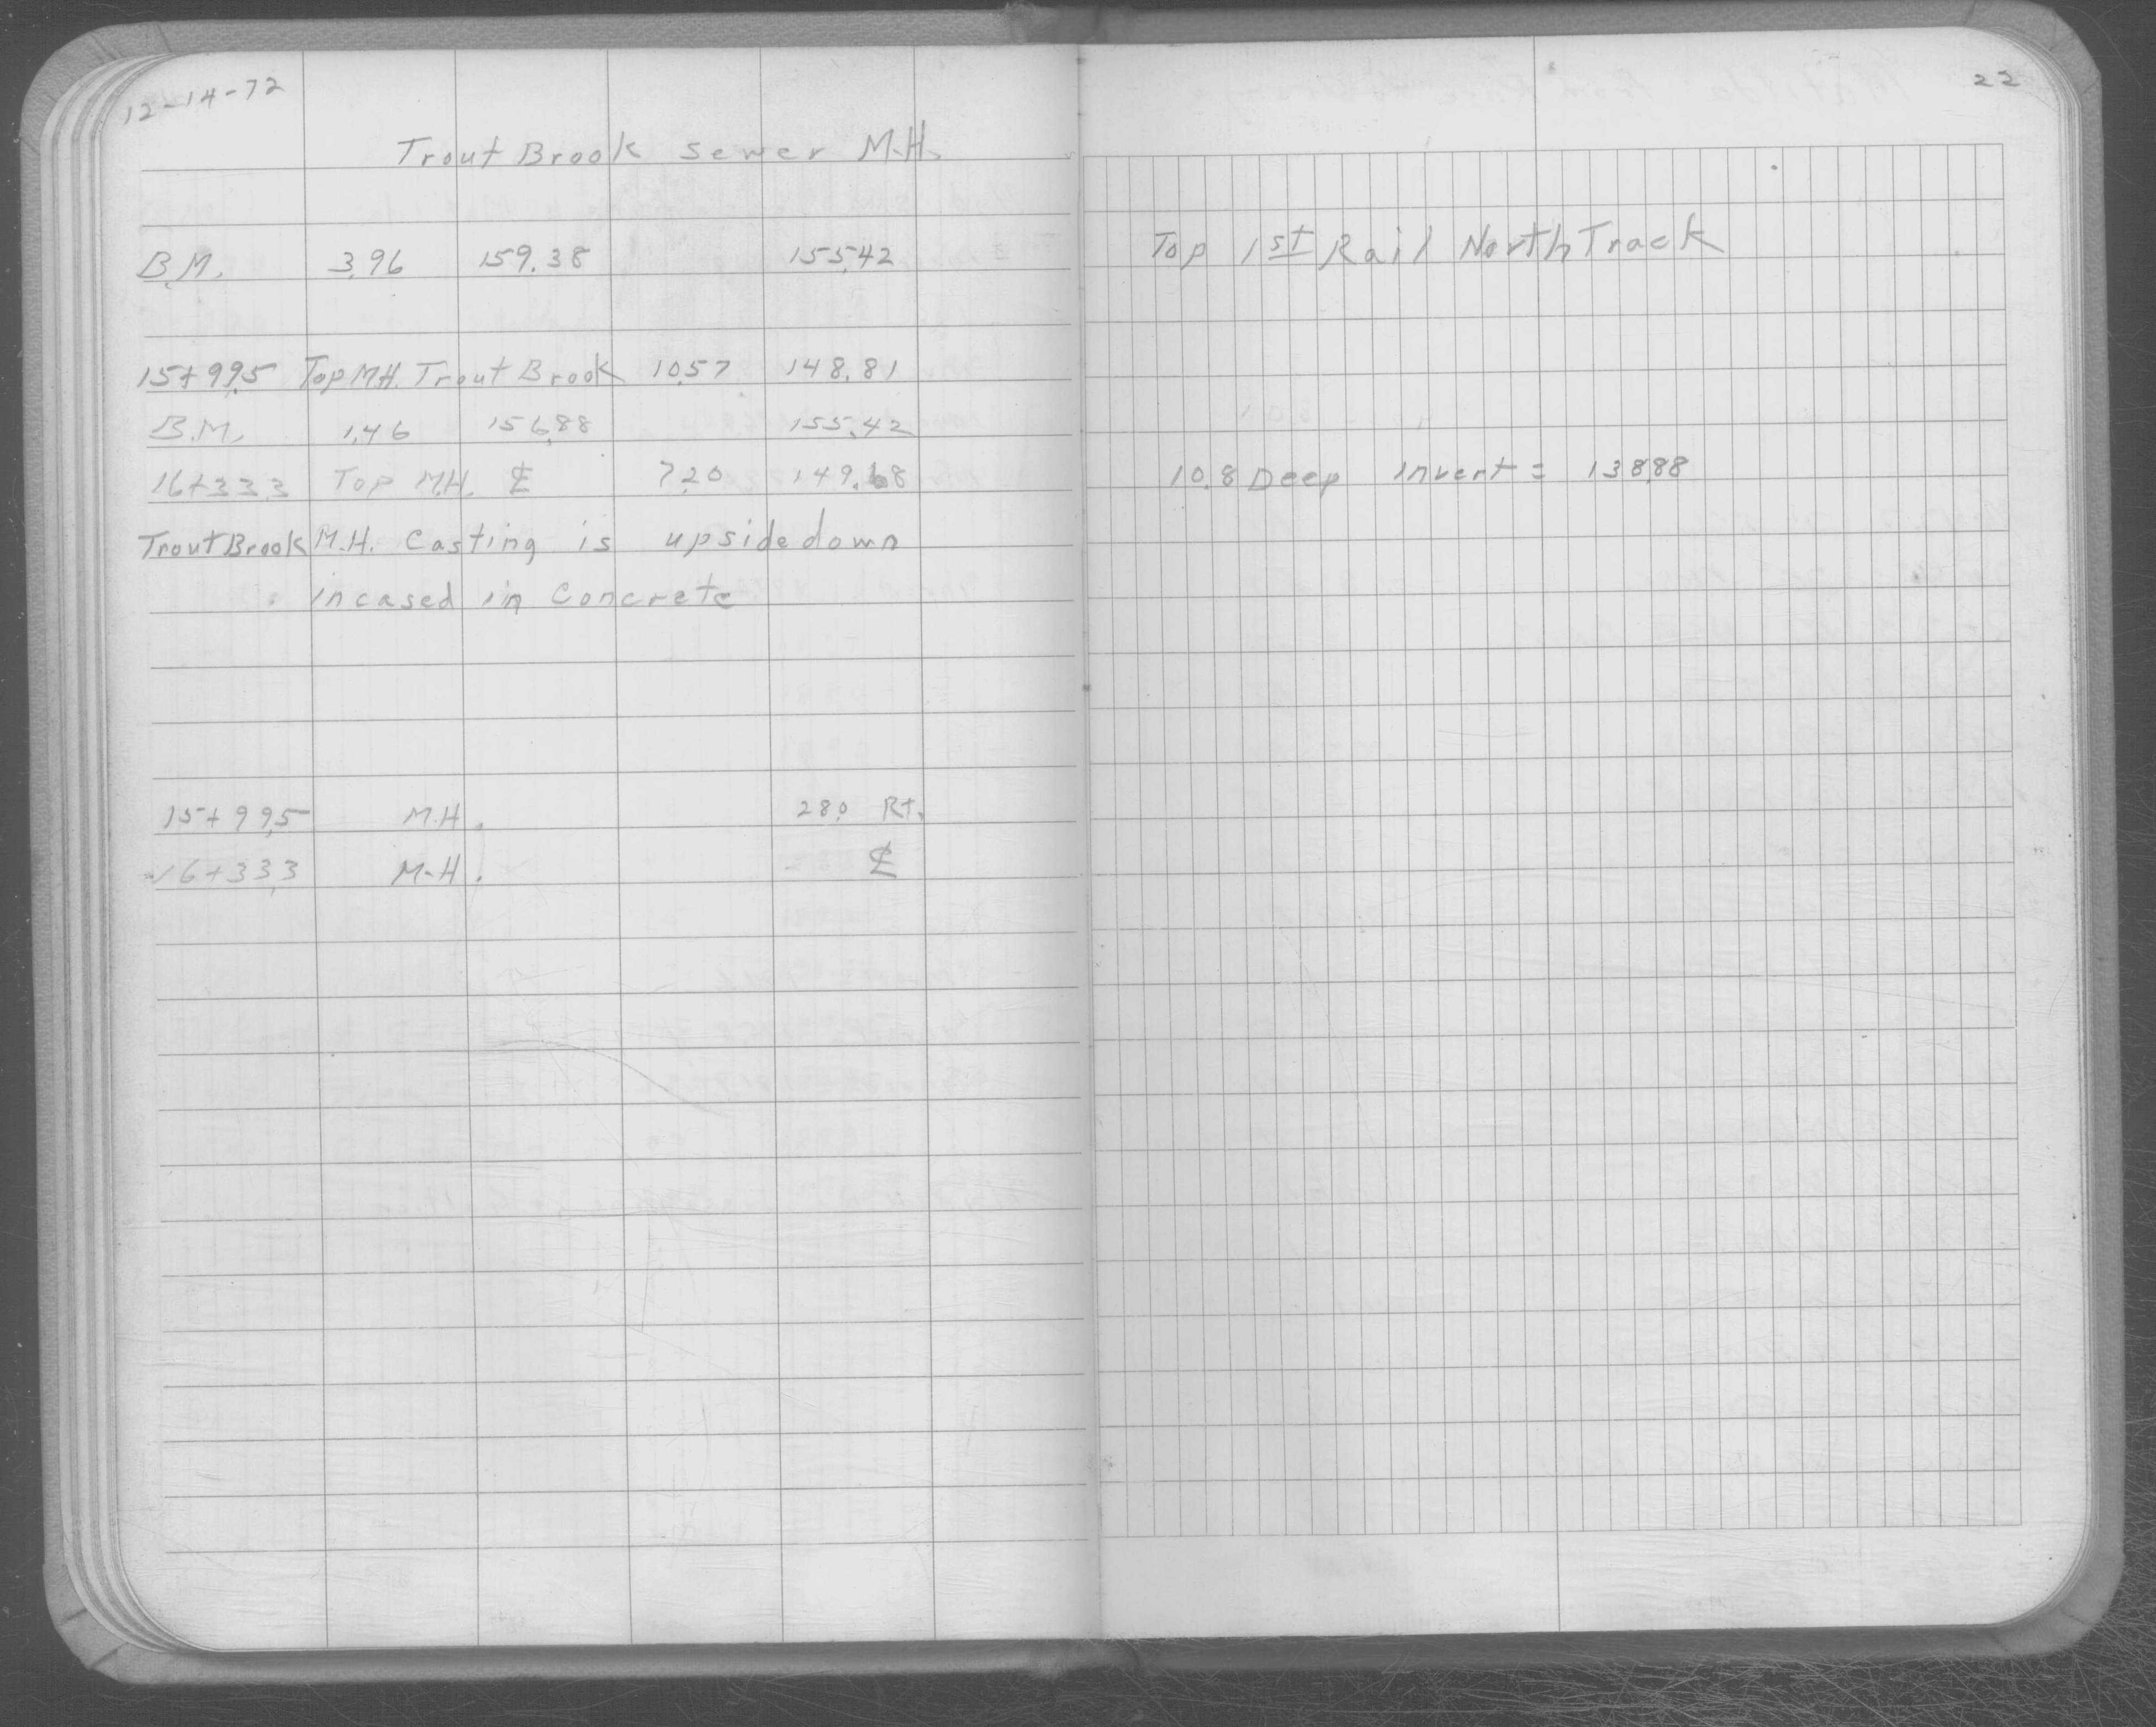 12-14-72
22
Trout Brook Sewer M.H.
B.M. 3.96 159.38 155.42 Top 1st Rail North Track
15+99.5 Top M.H. Trout Brook 10.57 148.81
B.M. 1.46 156.88 155.42
16+33.3 Top M.H. ℄ 7.20 149.68 10.8 Deep Invert = 138.88
Trout Brook M.H. Casting is upside down
incased in Concrete
15+99.5 M.H. 28.0 Rt.
16+33.3 M-H. ℄